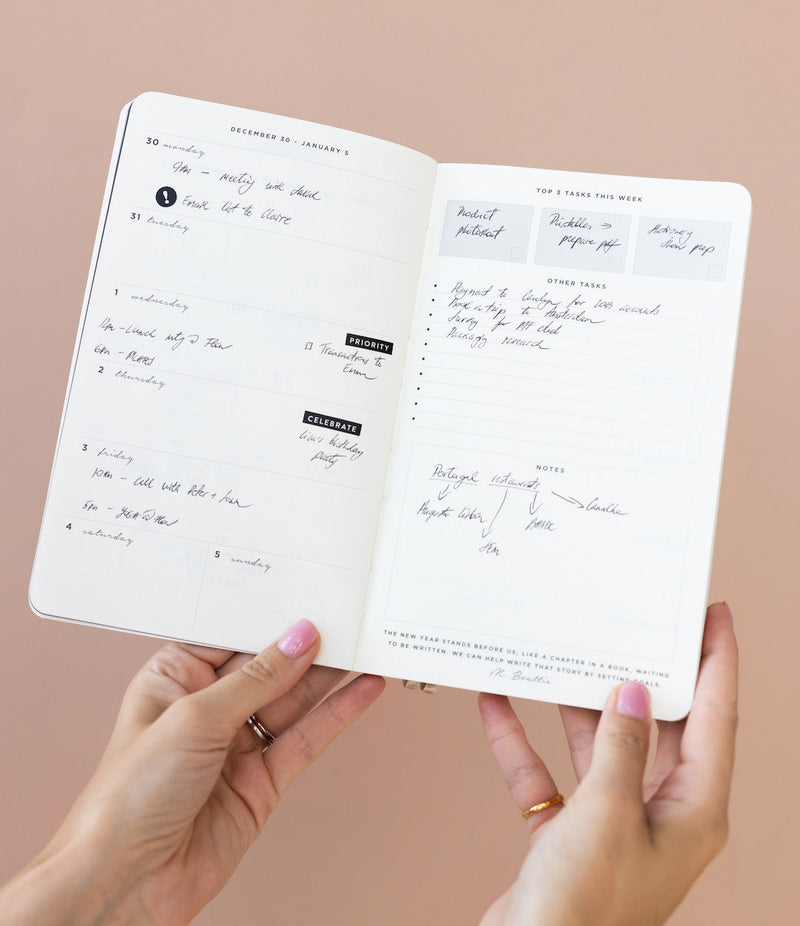 DECEMBER 30 - JANUARY 5
30 monday
9AM - meeting with
! Email list to Claire
31 tuesday
1 wednesday
PRIORITY
12PM - Lunch mtg @
6PM - PILATES
Transactions to
Emma
2 thursday
CELEBRATE
Lisa's birthday
party
3 friday
10AM - call with Peter +
5PM - YOGA @
4 saturday
5 sunday
TOP 3 TASKS THIS WEEK
Product
photoshoot
Printables →
prepare pdf
Stationery
show prep
OTHER TASKS
Payment to Carolyn for
Book a trip to Amsterdam
Survey for club
Packaging research
NOTES
Portugal restaurants
Augusto Lisboa
JEM
BAHR
THE NEW YEAR STANDS BEFORE US, LIKE A CHAPTER IN A BOOK, WAITING
TO BE WRITTEN. WE CAN HELP WRITE THAT STORY BY SETTING GOALS.
M. Beattie